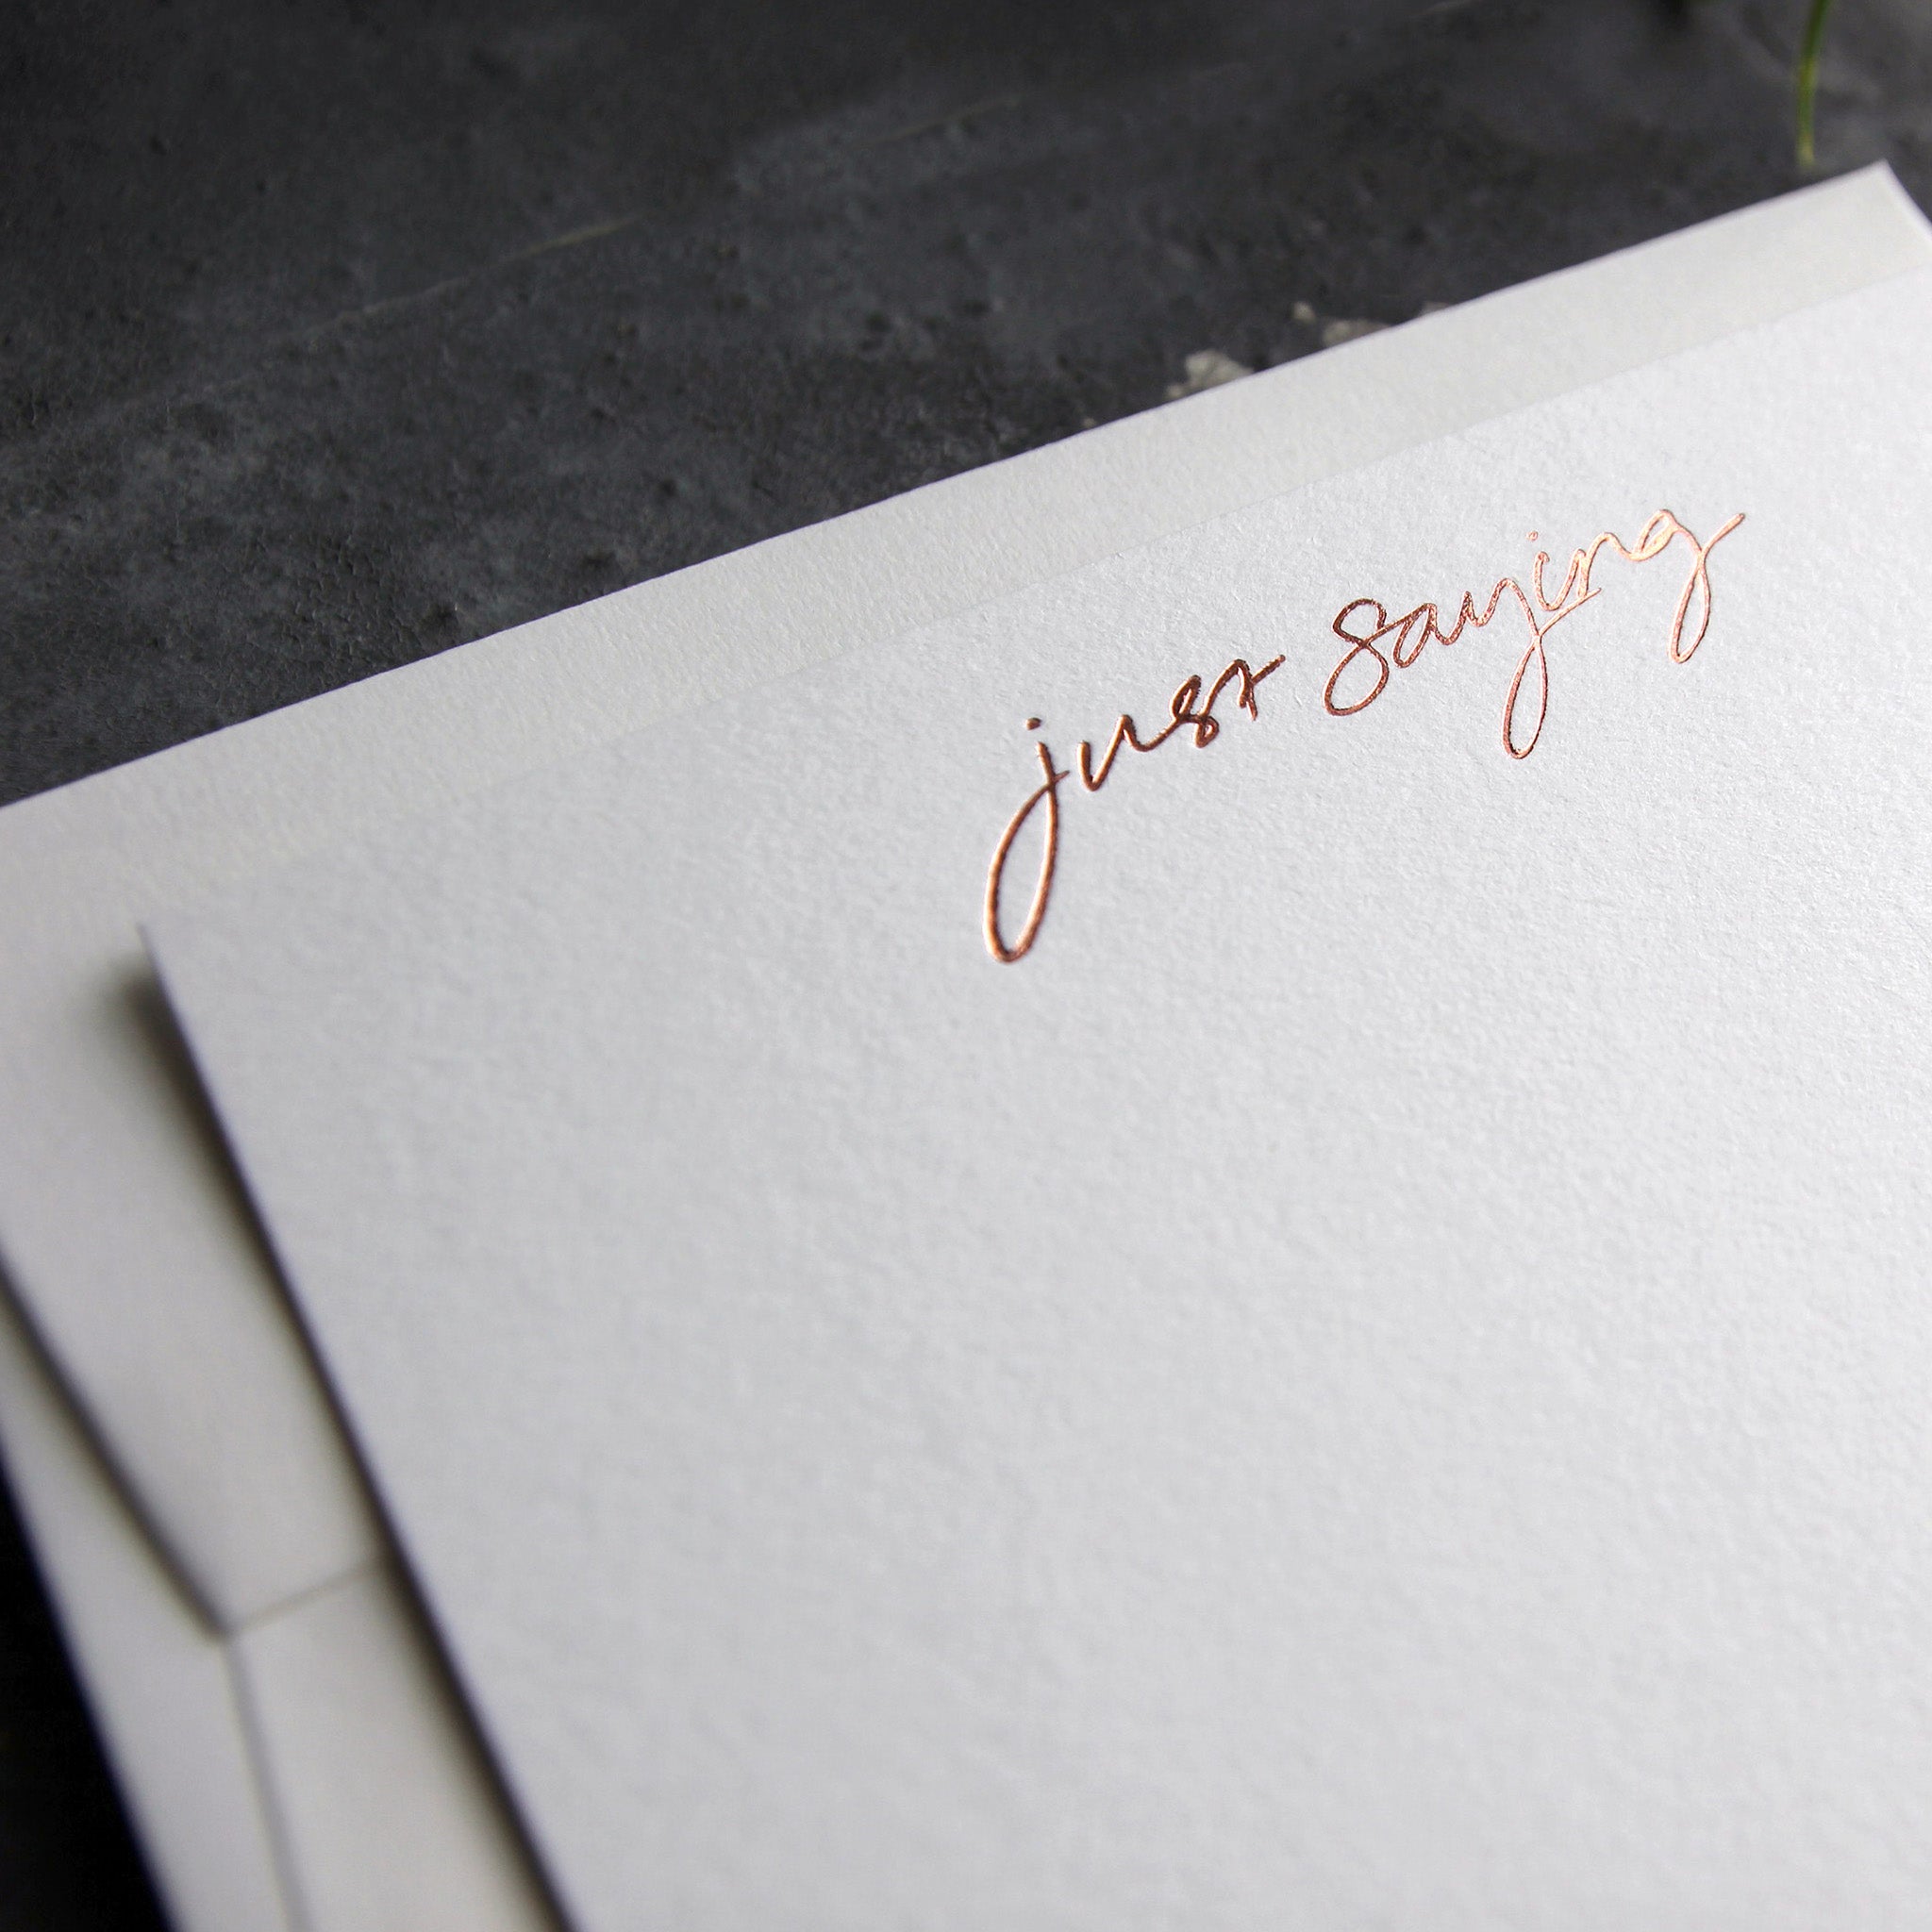 just saying